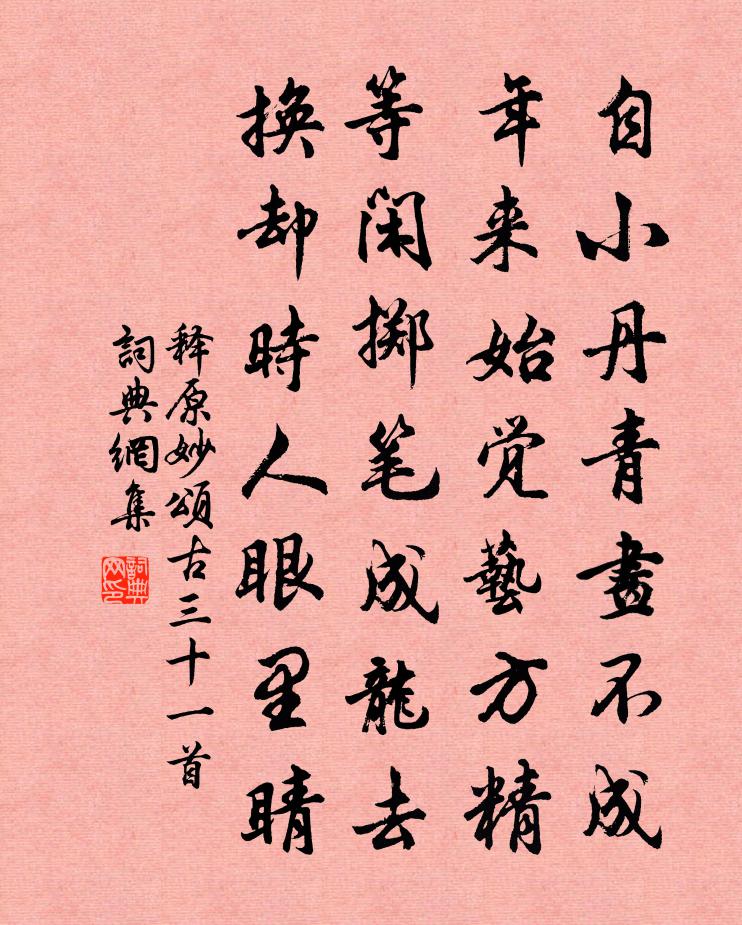 自小丹青畫不成
年来始觉藝方精
等闲掷笔成龍去
换却時人眼里睛
释原妙頌古三十一首
詞典網集
詞典网印